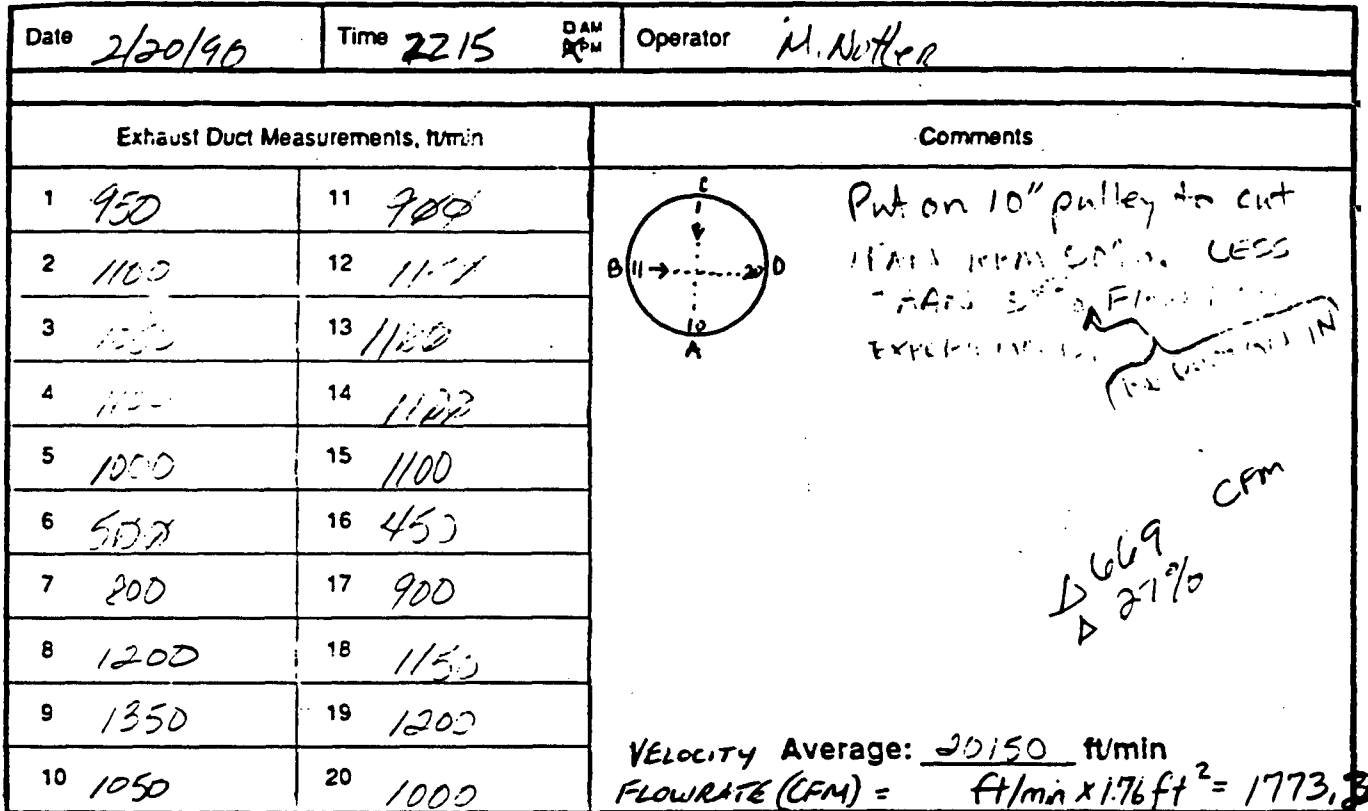 Date 2/20/90 Time 2215 AM PM Operator M. Nutter
Exhaust Duct Measurements, ft/min Comments
1 950 11 900
2 1100 12
3 1000 13 1100
4 14 1100
5 1000 15 1100
6 500 16 450
7 800 17 900
8 1200 18 1150
9 1350 19 1200
10 1050 20 1000
C
1
B 11 20 D
10
A
Put on 10" pulley to cut
LESS
THAN
IN
CFM
Δ 669
Δ 27%
VELOCITY Average: 20150 ft/min
FLOWRATE (CFM) = ft/min x 1.76 ft² = 1773.